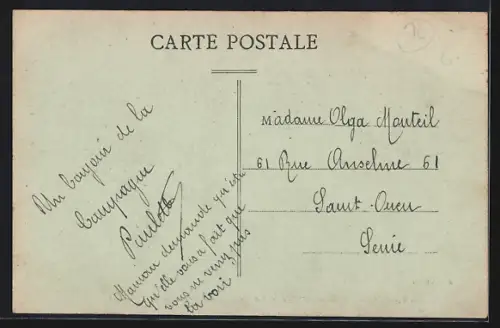 CARTE POSTALE
Un bonjour de la
Campagne
Paulette
Maman demande qu'est
qu'elle vous a fait que
vous ne venez pas
la voir
Madame Olga Monteil
61 Rue Anselme 61
Saint-Ouen
Seine